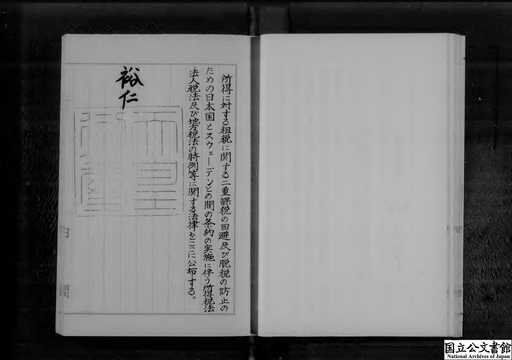 所得に対する租税に関する二重課税の回避及び脱税の防止の
ための日本国とスウェーデンとの間の条約の実施に伴う所得税法
法人税法及び地方税法の特例等に関する法律をここに公布する。
裕仁
天皇
御璽
国立公文書館
National Archives of Japan